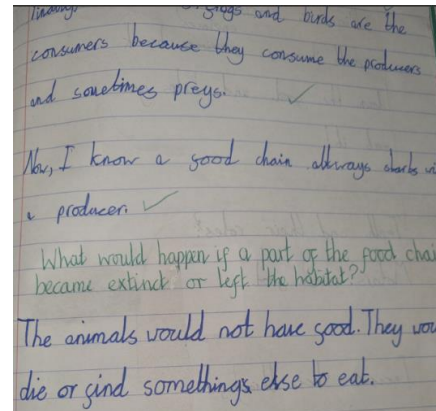 and birds are the
consumers because they consume the producers
and sometimes preys.
Now, I know a good chain allways starts wi
a producer.
What would happen if a part of the food chai
became extinct or left the habitat?
The animals would not have good. They wou
die or gind somethings else to eat.